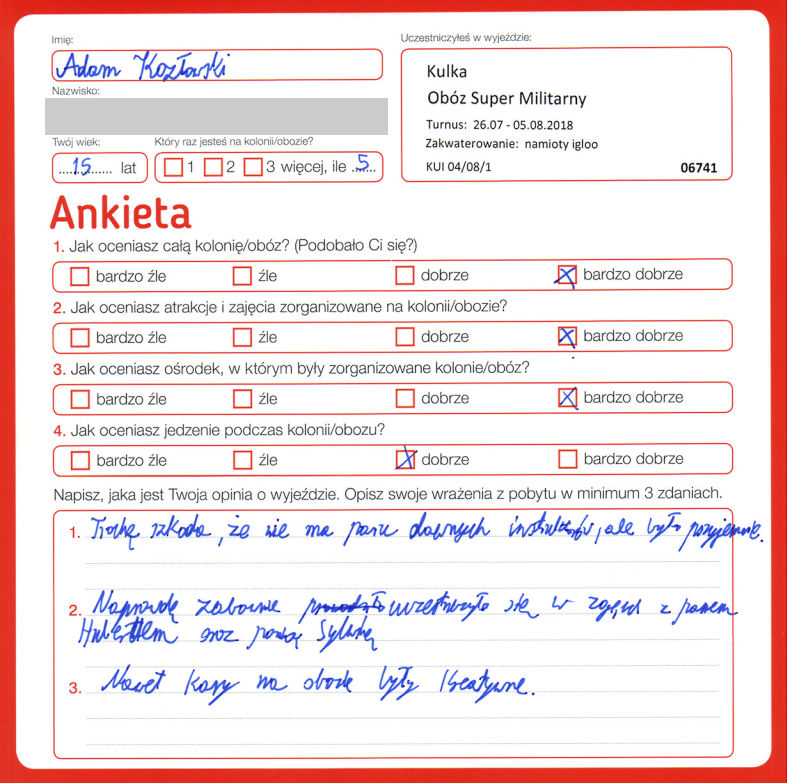 Imię:
Adam Kozłowski
Nazwisko:
Twój wiek:
15 lat
Który raz jesteś na kolonii/obozie?
1 2 3 więcej, ile 5
Uczestniczyłeś w wyjeździe:
Kulka
Obóz Super Militarny
Turnus: 26.07 - 05.08.2018
Zakwaterowanie: namioty igloo
KUI 04/08/1 06741
Ankieta
1. Jak oceniasz całą kolonię/obóz? (Podobało Ci się?)
bardzo źle źle dobrze bardzo dobrze
2. Jak oceniasz atrakcje i zajęcia zorganizowane na kolonii/obozie?
bardzo źle źle dobrze bardzo dobrze
3. Jak oceniasz ośrodek, w którym były zorganizowane kolonie/obóz?
bardzo źle źle dobrze bardzo dobrze
4. Jak oceniasz jedzenie podczas kolonii/obozu?
bardzo źle źle dobrze bardzo dobrze
Napisz, jaka jest Twoja opinia o wyjeździe. Opisz swoje wrażenia z pobytu w minimum 3 zdaniach.
1. Trochę szkoda, że nie ma paru dawnych instruktorów, ale było przyjemnie.
2. Naprawdę zabawnie uczestniczyło się w zajęciach z panem
Hubertem oraz panią Sylwią
3. Nawet kary na obozie były kreatywne.